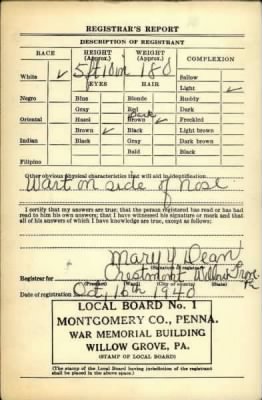 REGISTRAR'S REPORT
DESCRIPTION OF REGISTRANT
RACE HEIGHT (Approx.) WEIGHT (Approx.) COMPLEXION
White ✓ 5ft 10in 180 Sallow
EYES HAIR Light ✓
Negro Blue Blonde Ruddy
Gray Red Dark
Dark
Oriental Hazel Brown ✓ Freckled
Brown ✓ Black Light brown
Indian Black Gray Dark brown
Bald Black
Filipino
Other obvious physical characteristics that will aid in identification
Wart on side of nose
I certify that my answers are true; that the person registered has read or has had
read to him his own answers; that I have witnessed his signature or mark and that
all of his answers of which I have knowledge are true, except as follows:
Mary V. Dean
(Signature of registrar)
Registrar for Crestmont Willow Grove Pa
(Precinct) (Ward) (City or county) (State)
Date of registration Oct. 16th 1940
LOCAL BOARD No. 1
MONTGOMERY CO., PENNA.
WAR MEMORIAL BUILDING
WILLOW GROVE, PA.
(STAMP OF LOCAL BOARD)
(The stamp of the Local Board having jurisdiction of the registrant
shall be placed in the above space.)